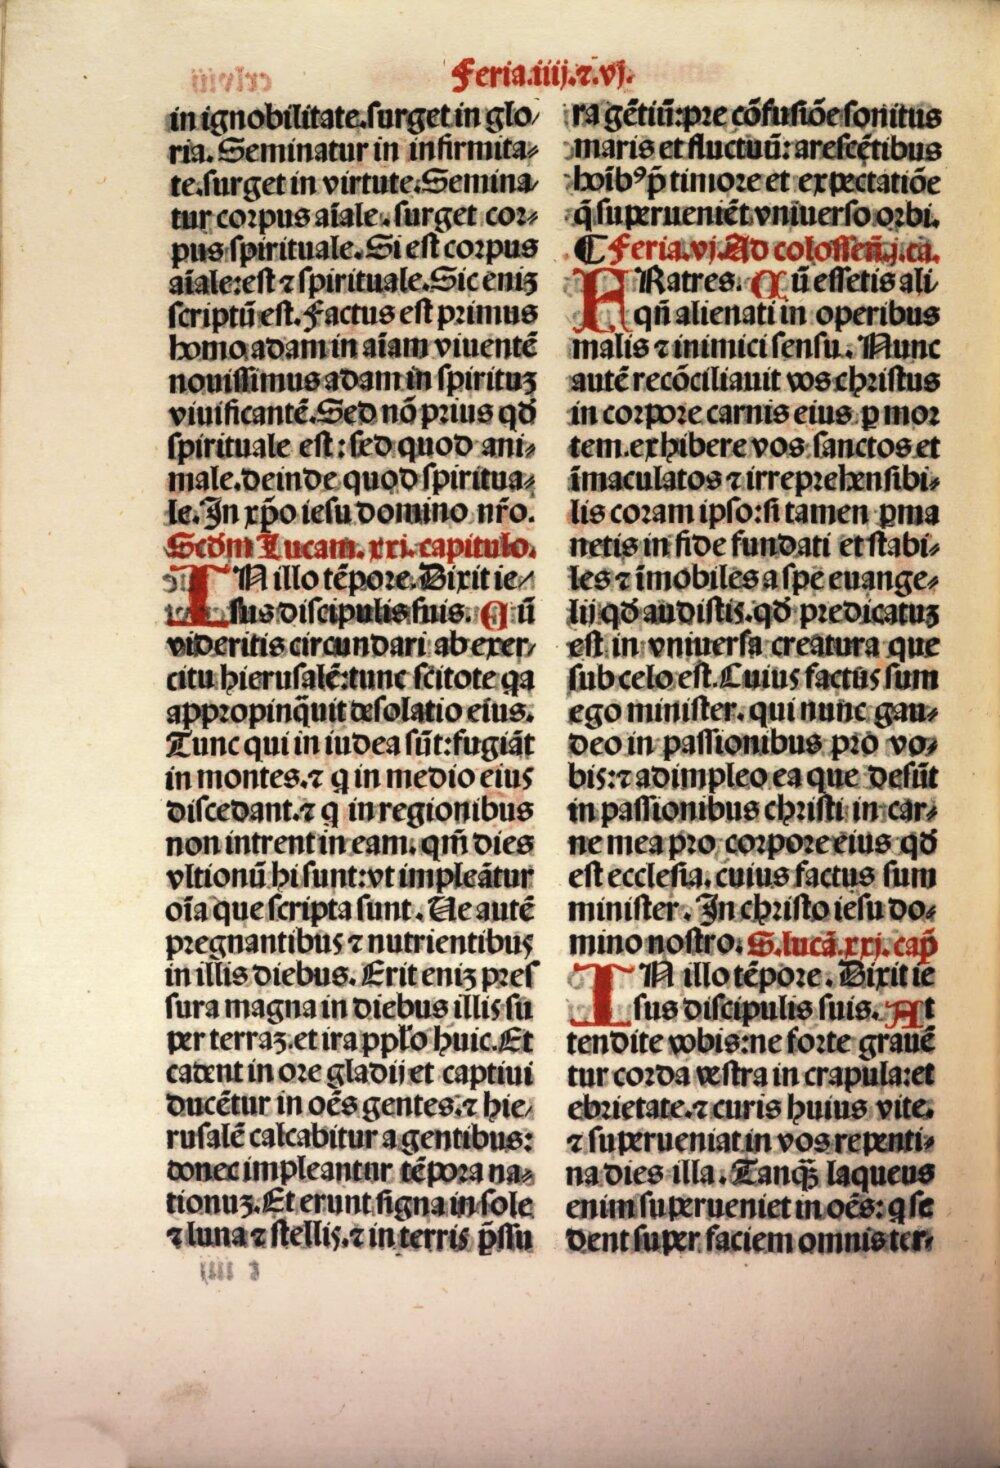 Feria.iiij.⁊.vj.
in ignobilitate.surget in glo/
ria. Seminatur in infirmita⸗
te.surget in virtute.Semina/
tur corpus aīale.surget cor⸗
pus spirituale.Si est corpus
aīale:est ⁊ spirituale.Sic eniꝫ
scriptū est.Factus est primus
homo adam in aīam viuentē
nouissimus adam in spirituꝫ
viuificantē.Sed nō prius qđ
spirituale est:sed quod ani⸗
male.deinde quod spiritua⸗
le.In xp̄o iesu domino nr̄o.
Scđm Lucam. xxi. capitulo.
IN illo tēpore.Dixit ie/
sus discipulis suis. Cū
videritis circundari ab exer/
citu hierusalē:tunc scitote qa
appropinq̄uit desolatio eius.
Tunc qui in iudea sūt:fugiāt
in montes.⁊ q in medio eius
discedant.⁊ q in regionibus
non intrent in eam. qm̄ dies
vltionū hi sunt:vt impleātur
oīa que scripta sunt.Ue autē
pregnantibus ⁊ nutrientibus
in illis diebus. Erit eniꝫ pres
sura magna in diebus illis su
per terraꝫ.et ira pplo huic.Et
cadent in ore gladij et captiui
ducētur in oēs gentes.⁊ hie/
rusalē calcabitur a gentibus:
donec impleantur tēpora na⸗
tionuꝫ.Et erunt signa in sole
⁊ luna ⁊ stellis.⁊ in terris p̄ssu
ra gētiū:pre cōfusiōe sonitus
maris et fluctuū: arescētibus
hoībꝰ p̄ timore et expectatiōe
q̄ superueniēt vniuerso orbi.
¶ Feria.vj.Ad colosseñ.j.ca.
FRatres. Cū essetis ali/
qñ alienati in operibus
malis ⁊ inimici sensu. Nunc
autē recōciliauit vos christus
in corpore carnis eius ꝑ mor
tem.exhibere vos sanctos et
īmaculatos ⁊ irreprehensibi⸗
lis coram ipso:si tamen ꝑma
netis in fide fundati et stabi⸗
les ⁊ īmobiles a spe euange⸗
lij qđ audistis.qđ predicatuꝫ
est in vniuersa creatura que
sub celo est.Cuius factus sum
ego minister. qui nunc gau⸗
deo in passionibus pro vo⸗
bis:⁊ adimpleo ea que desūt
in passionibus christi in car⸗
ne mea pro corpore eius qđ
est ecclesia. cuius factus sum
minister. In christo iesu do⸗
mino nostro. S.lucā.xxj.cap̄
IN illo tēpore. Dixit ie
sus discipulis suis. At
tendite vobis:ne forte grauē
tur corda vestra in crapula:et
ebrietate.⁊ curis huius vite.
⁊ superueniat in vos repenti⸗
na dies illa. Tanqꝫ laqueus
enim superueniet in oēs: q se
dent super faciem omnis ter⸗